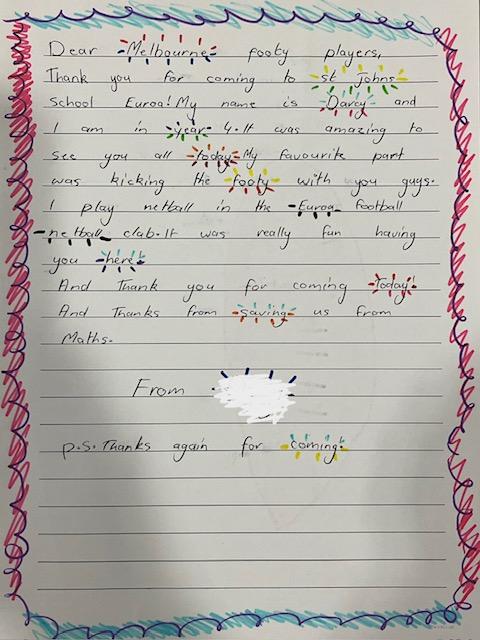 Dear Melbourne footy players,
Thank you for coming to st Johns
school Euroa! My name is Darcy and
I am in year 4. It was amazing to
see you all today. My favourite part
was kicking the footy with you guys.
I play netball in the Euroa football
netball club. It was really fun having
you here!
And Thank you for coming Today!
And Thanks from saving us from
Maths.
From
p.s. Thanks again for coming.